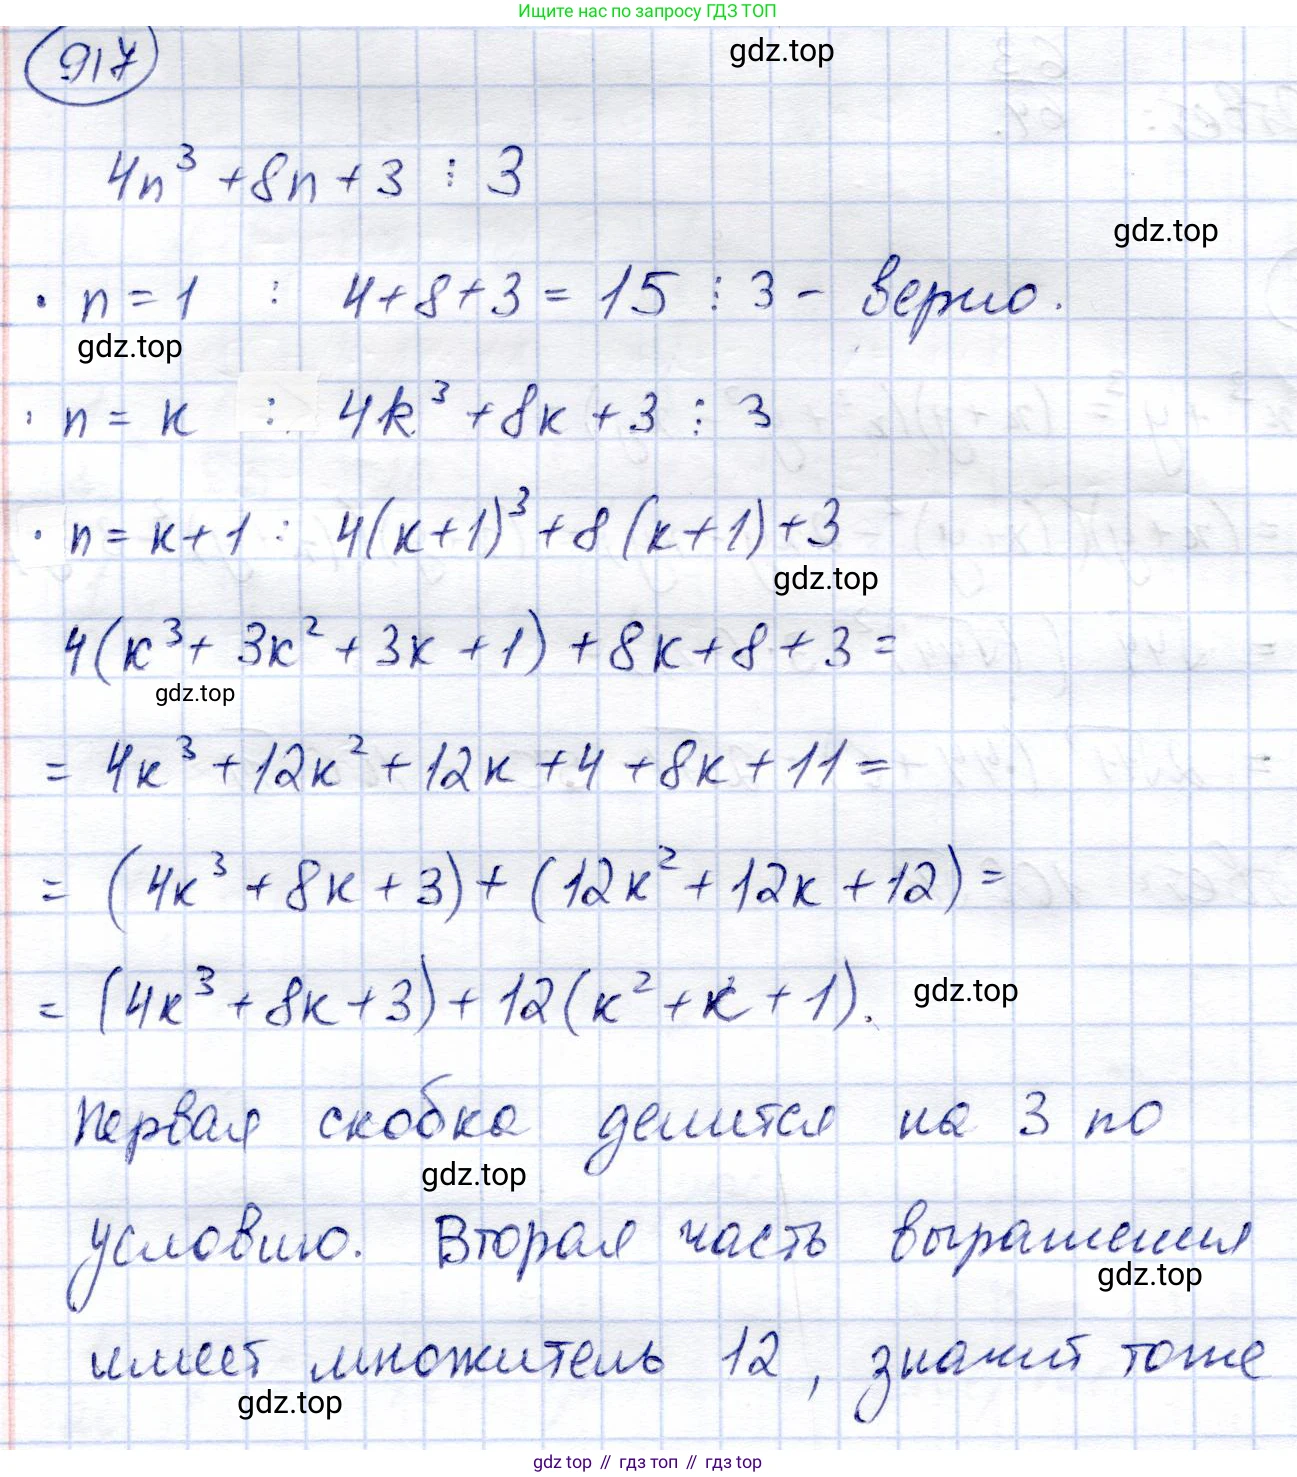 Ищите нас по запросу ГДЗ ТОП
917
gdz.top
4n³ + 8n + 3 ⋮ 3
gdz.top
• n = 1 : 4 + 8 + 3 = 15 ⋮ 3 – верно.
gdz.top
: n = k : 4k³ + 8k + 3 ⋮ 3
• n = k + 1 : 4(k + 1)³ + 8(k + 1) + 3
gdz.top
4(k³ + 3k² + 3k + 1) + 8k + 8 + 3 =
gdz.top
= 4k³ + 12k² + 12k + 4 + 8k + 11 =
= (4k³ + 8k + 3) + (12k² + 12k + 12) =
= (4k³ + 8k + 3) + 12(k² + k + 1).
gdz.top
Первая скобка делится на 3 по
gdz.top
условию. Вторая часть выражения
gdz.top
имеет множитель 12, значит тоже
gdz.top
gdz top // гдз топ // gdz top